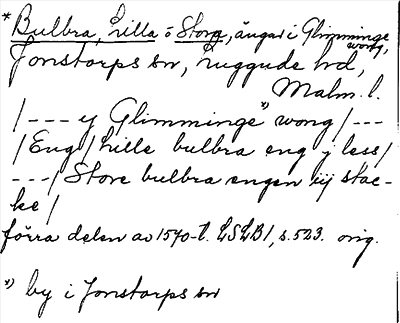 * Bulbra, Lilla o Stora, ängar i Glimminge wong,
Jonstorps sn, Luggude hd,
Malm. l.
/ --- y Glimminge *) wong / ---
/ Eng / Lille bulbra eng j less /
--- / Store bulbra engen iij stac-
ke /
förra delen av 1570-t. LSLB1, s. 523. orig.
*) by i Jonstorps sn